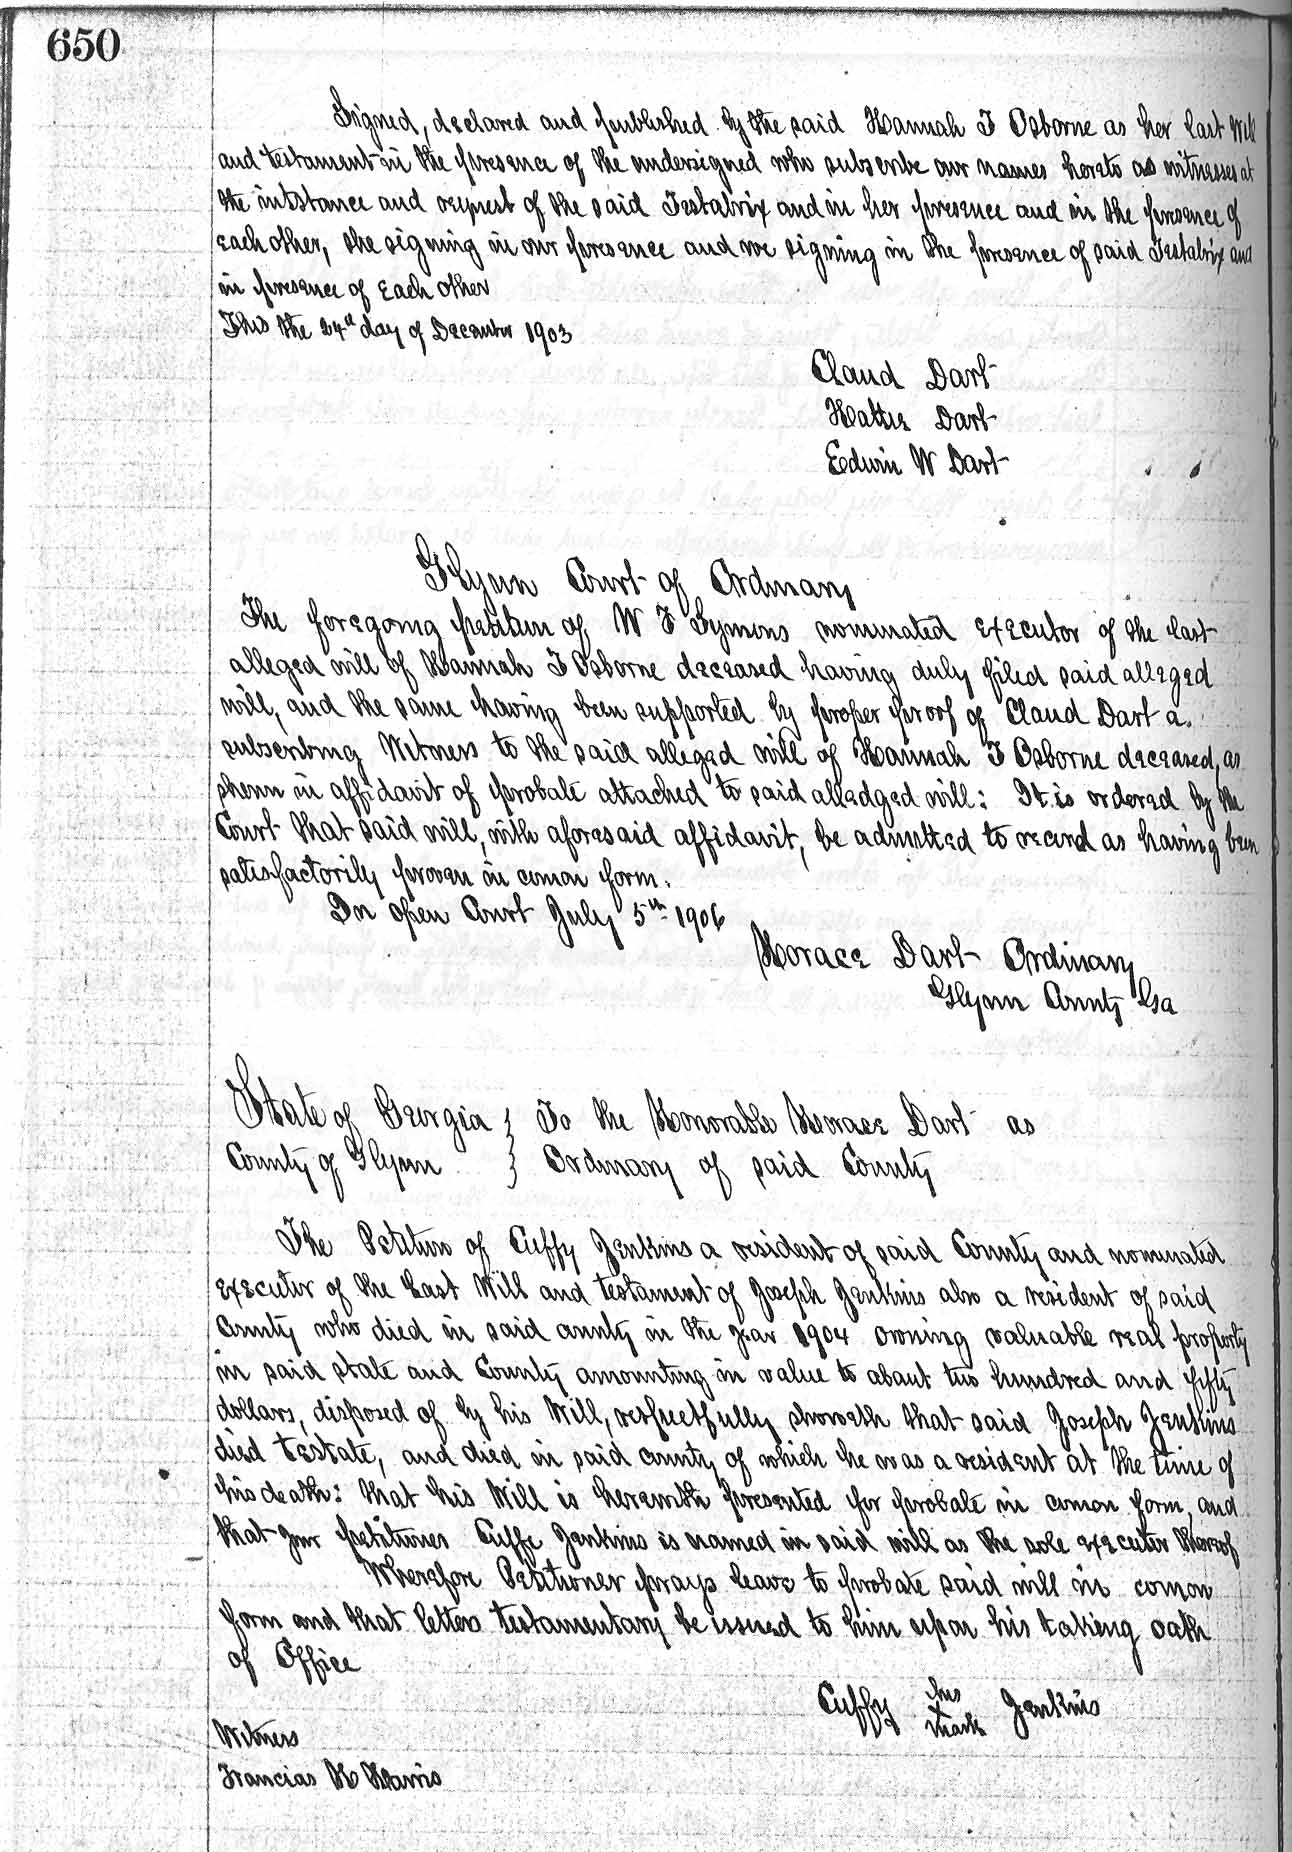 650
Signed, declared and published by the said Hannah F Osborne as her last Will
and testament in the presence of the undersigned who subscribe our names hereto as witnesses at
the intstance and request of the said Testatrix and in her presence and in the presence of
each other, she signing in our presence and we signing in the presence of said Testatrix and
in presence of each other
This the 24th day of December 1903
Claud Dart
Hattie Dart
Edwin W Dart
Glynn Court of Ordinary
The foregoing petition of W F Symons nominated executor of the last
alleged will of Hannah F Osborne deceased having duly filed said alleged
will, and the same having been supported by proper proof of Claud Dart a
subscribing Witness to the said alleged will of Hannah F Osborne deceased, as
shown in affidavit of probate attached to said alledged will: It is ordered by the
Court that said will, with aforesaid affidavit, be admitted to record as having been
satisfactorily proven in comon form.
In open Court July 5th 1906
Horace Dart Ordinary
Glynn County Ga
State of Georgia } To the Honorable Horace Dart as
County of Glynn } Ordinary of said County
The Petition of Cuffy Jenkins a resident of said County and nominated
executor of the Last Will and testament of Joseph Jenkins also a resident of said
County who died in said county in the year 1904 owning valuable real property
in said state and County amounting in value to about two hundred and fifty
dollars, disposed of by his Will, respectfully showeth that said Joseph Jenkins
died testate, and died in said county of which he was a resident at the time of
his death: that his Will is herewith presented for probate in comon form, and
that your petitioner Cuffy Jenkins is named in said will as the sole executor thereof
Wherefore Petitioner prays leave to probate said will in comon
form and that letters testamentary be issued to him upon his taking oath
of Office
Cuffy his mark Jenkins
Witness
Francias H Harris